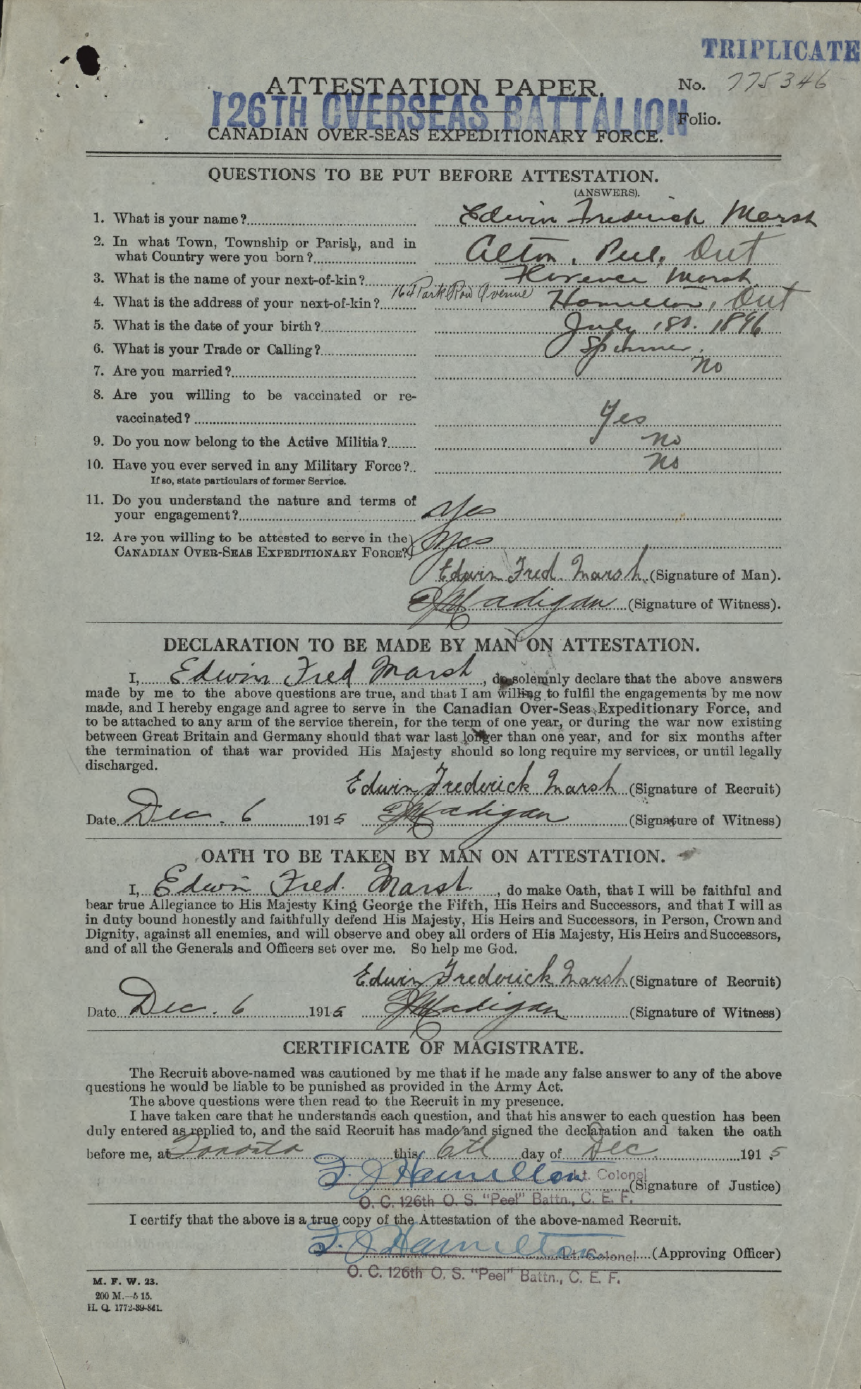 TRIPLICATE
ATTESTATION PAPER.
No. 775346
126TH OVERSEAS BATTALION
Folio.
CANADIAN OVER-SEAS EXPEDITIONARY FORCE.
QUESTIONS TO BE PUT BEFORE ATTESTATION.
(ANSWERS).
1. What is your name? Edwin Frederick Marsh
2. In what Town, Township or Parish, and in
what Country were you born? Alton, Peel, Ont
3. What is the name of your next-of-kin? Florence Marsh
4. What is the address of your next-of-kin? 164 Park Row Avenue Hamilton, Ont
5. What is the date of your birth? July 1896
6. What is your Trade or Calling? Spinner.
7. Are you married? No
8. Are you willing to be vaccinated or re-
vaccinated? Yes
9. Do you now belong to the Active Militia? No
10. Have you ever served in any Military Force? No
If so, state particulars of former Service.
11. Do you understand the nature and terms of
your engagement? Yes
12. Are you willing to be attested to serve in the
CANADIAN OVER-SEAS EXPEDITIONARY FORCE? Yes
Edwin Fred. Marsh (Signature of Man).
Madigan (Signature of Witness).
DECLARATION TO BE MADE BY MAN ON ATTESTATION.
I, Edwin Fred Marsh, do solemnly declare that the above answers
made by me to the above questions are true, and that I am willing to fulfil the engagements by me now
made, and I hereby engage and agree to serve in the Canadian Over-Seas Expeditionary Force, and
to be attached to any arm of the service therein, for the term of one year, or during the war now existing
between Great Britain and Germany should that war last longer than one year, and for six months after
the termination of that war provided His Majesty should so long require my services, or until legally
discharged.
Edwin Frederick Marsh (Signature of Recruit)
Date Dec. 6 1915 Madigan (Signature of Witness)
OATH TO BE TAKEN BY MAN ON ATTESTATION.
I, Edwin Fred. Marsh, do make Oath, that I will be faithful and
bear true Allegiance to His Majesty King George the Fifth, His Heirs and Successors, and that I will as
in duty bound honestly and faithfully defend His Majesty, His Heirs and Successors, in Person, Crown and
Dignity, against all enemies, and will observe and obey all orders of His Majesty, His Heirs and Successors,
and of all the Generals and Officers set over me. So help me God.
Edwin Frederick Marsh (Signature of Recruit)
Date Dec. 6 1915 Madigan (Signature of Witness)
CERTIFICATE OF MAGISTRATE.
The Recruit above-named was cautioned by me that if he made any false answer to any of the above
questions he would be liable to be punished as provided in the Army Act.
The above questions were then read to the Recruit in my presence.
I have taken care that he understands each question, and that his answer to each question has been
duly entered as replied to, and the said Recruit has made and signed the declaration and taken the oath
before me, at Toronto this 6th day of Dec 1915
F. J. Hamilton Lt. Colonel (Signature of Justice)
O. C. 126th O. S. "Peel" Battn., C. E. F.
I certify that the above is a true copy of the Attestation of the above-named Recruit.
F. J. Hamilton Lt. Colonel (Approving Officer)
O. C. 126th O. S. "Peel" Battn., C. E. F.
M. F. W. 23.
200 M.—5 15.
H. Q. 1772-39-841.